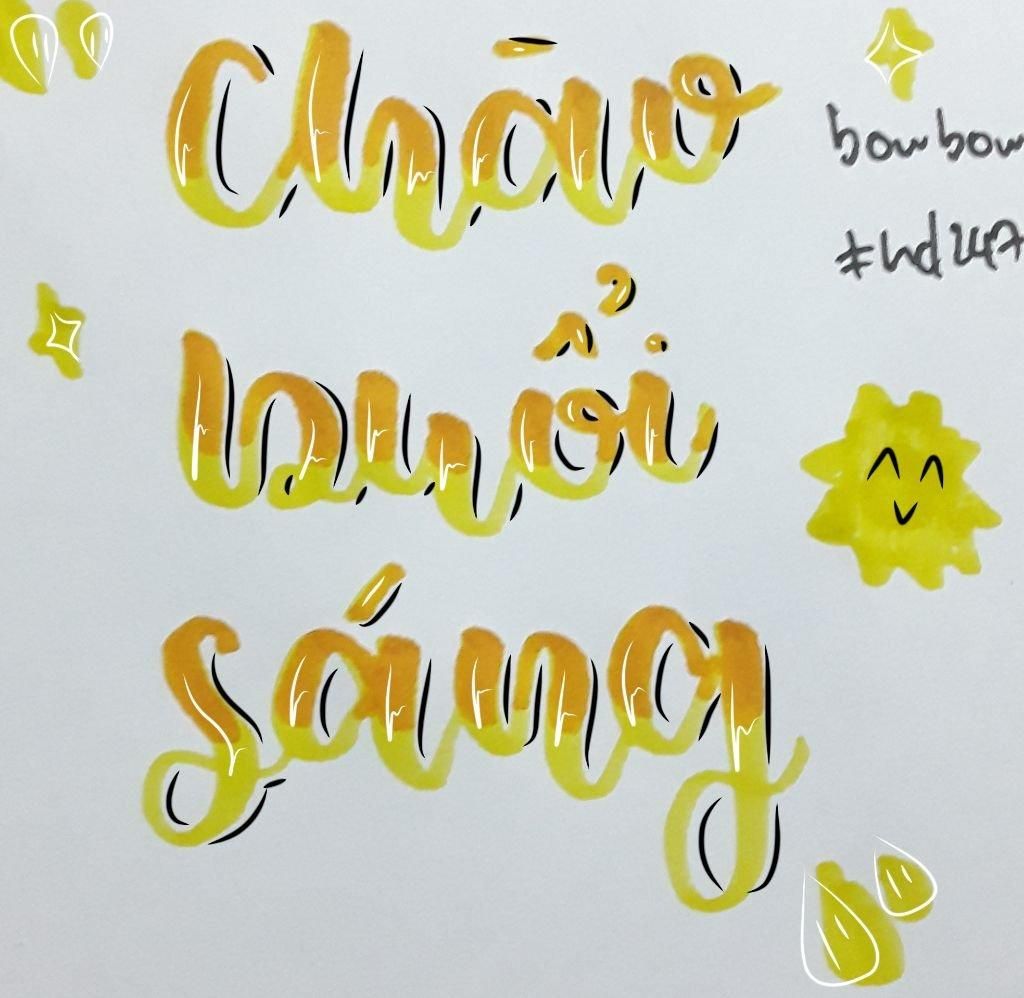 Chào
buổi
sáng
bow bow
#hd247